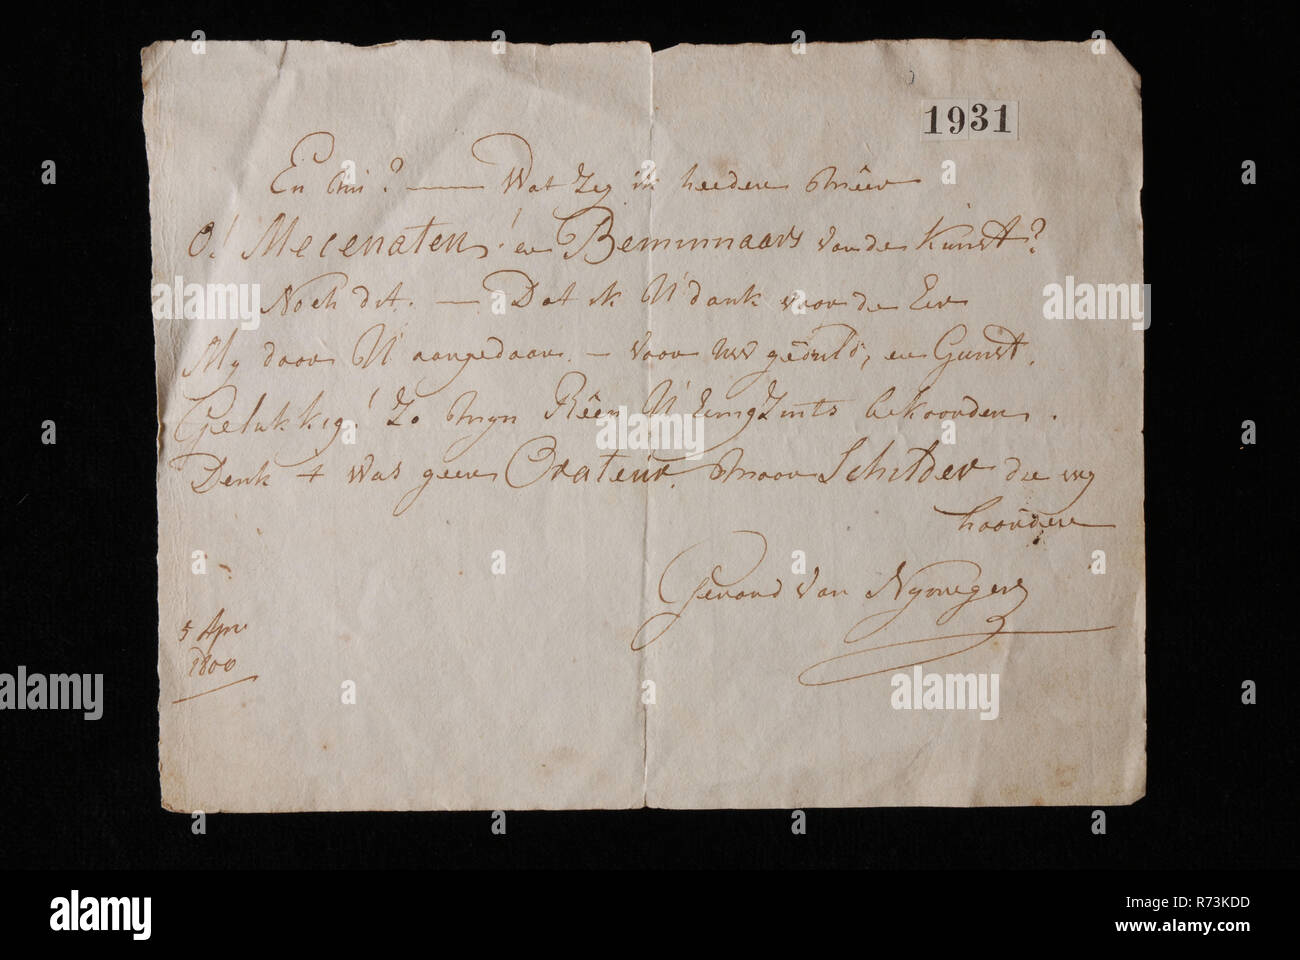 1931
En nu? — Wat zeg ik heeden meêr
O! Mecenaten! en Beminnaars van de Kunst?
Noch dit. — Dat ik U dank voor de Eer
My door U aangedaan. — voor uw geduld, en Gunst.
Gelukkig! Zo myn Rêen U Eenigzints bekoorden.
Denk t was geen Orateur. maar Schilder die wy
hoorden
Gerard van Nymegen
5 Apr
1800
alamy
Image ID: R73KDD
www.alamy.com